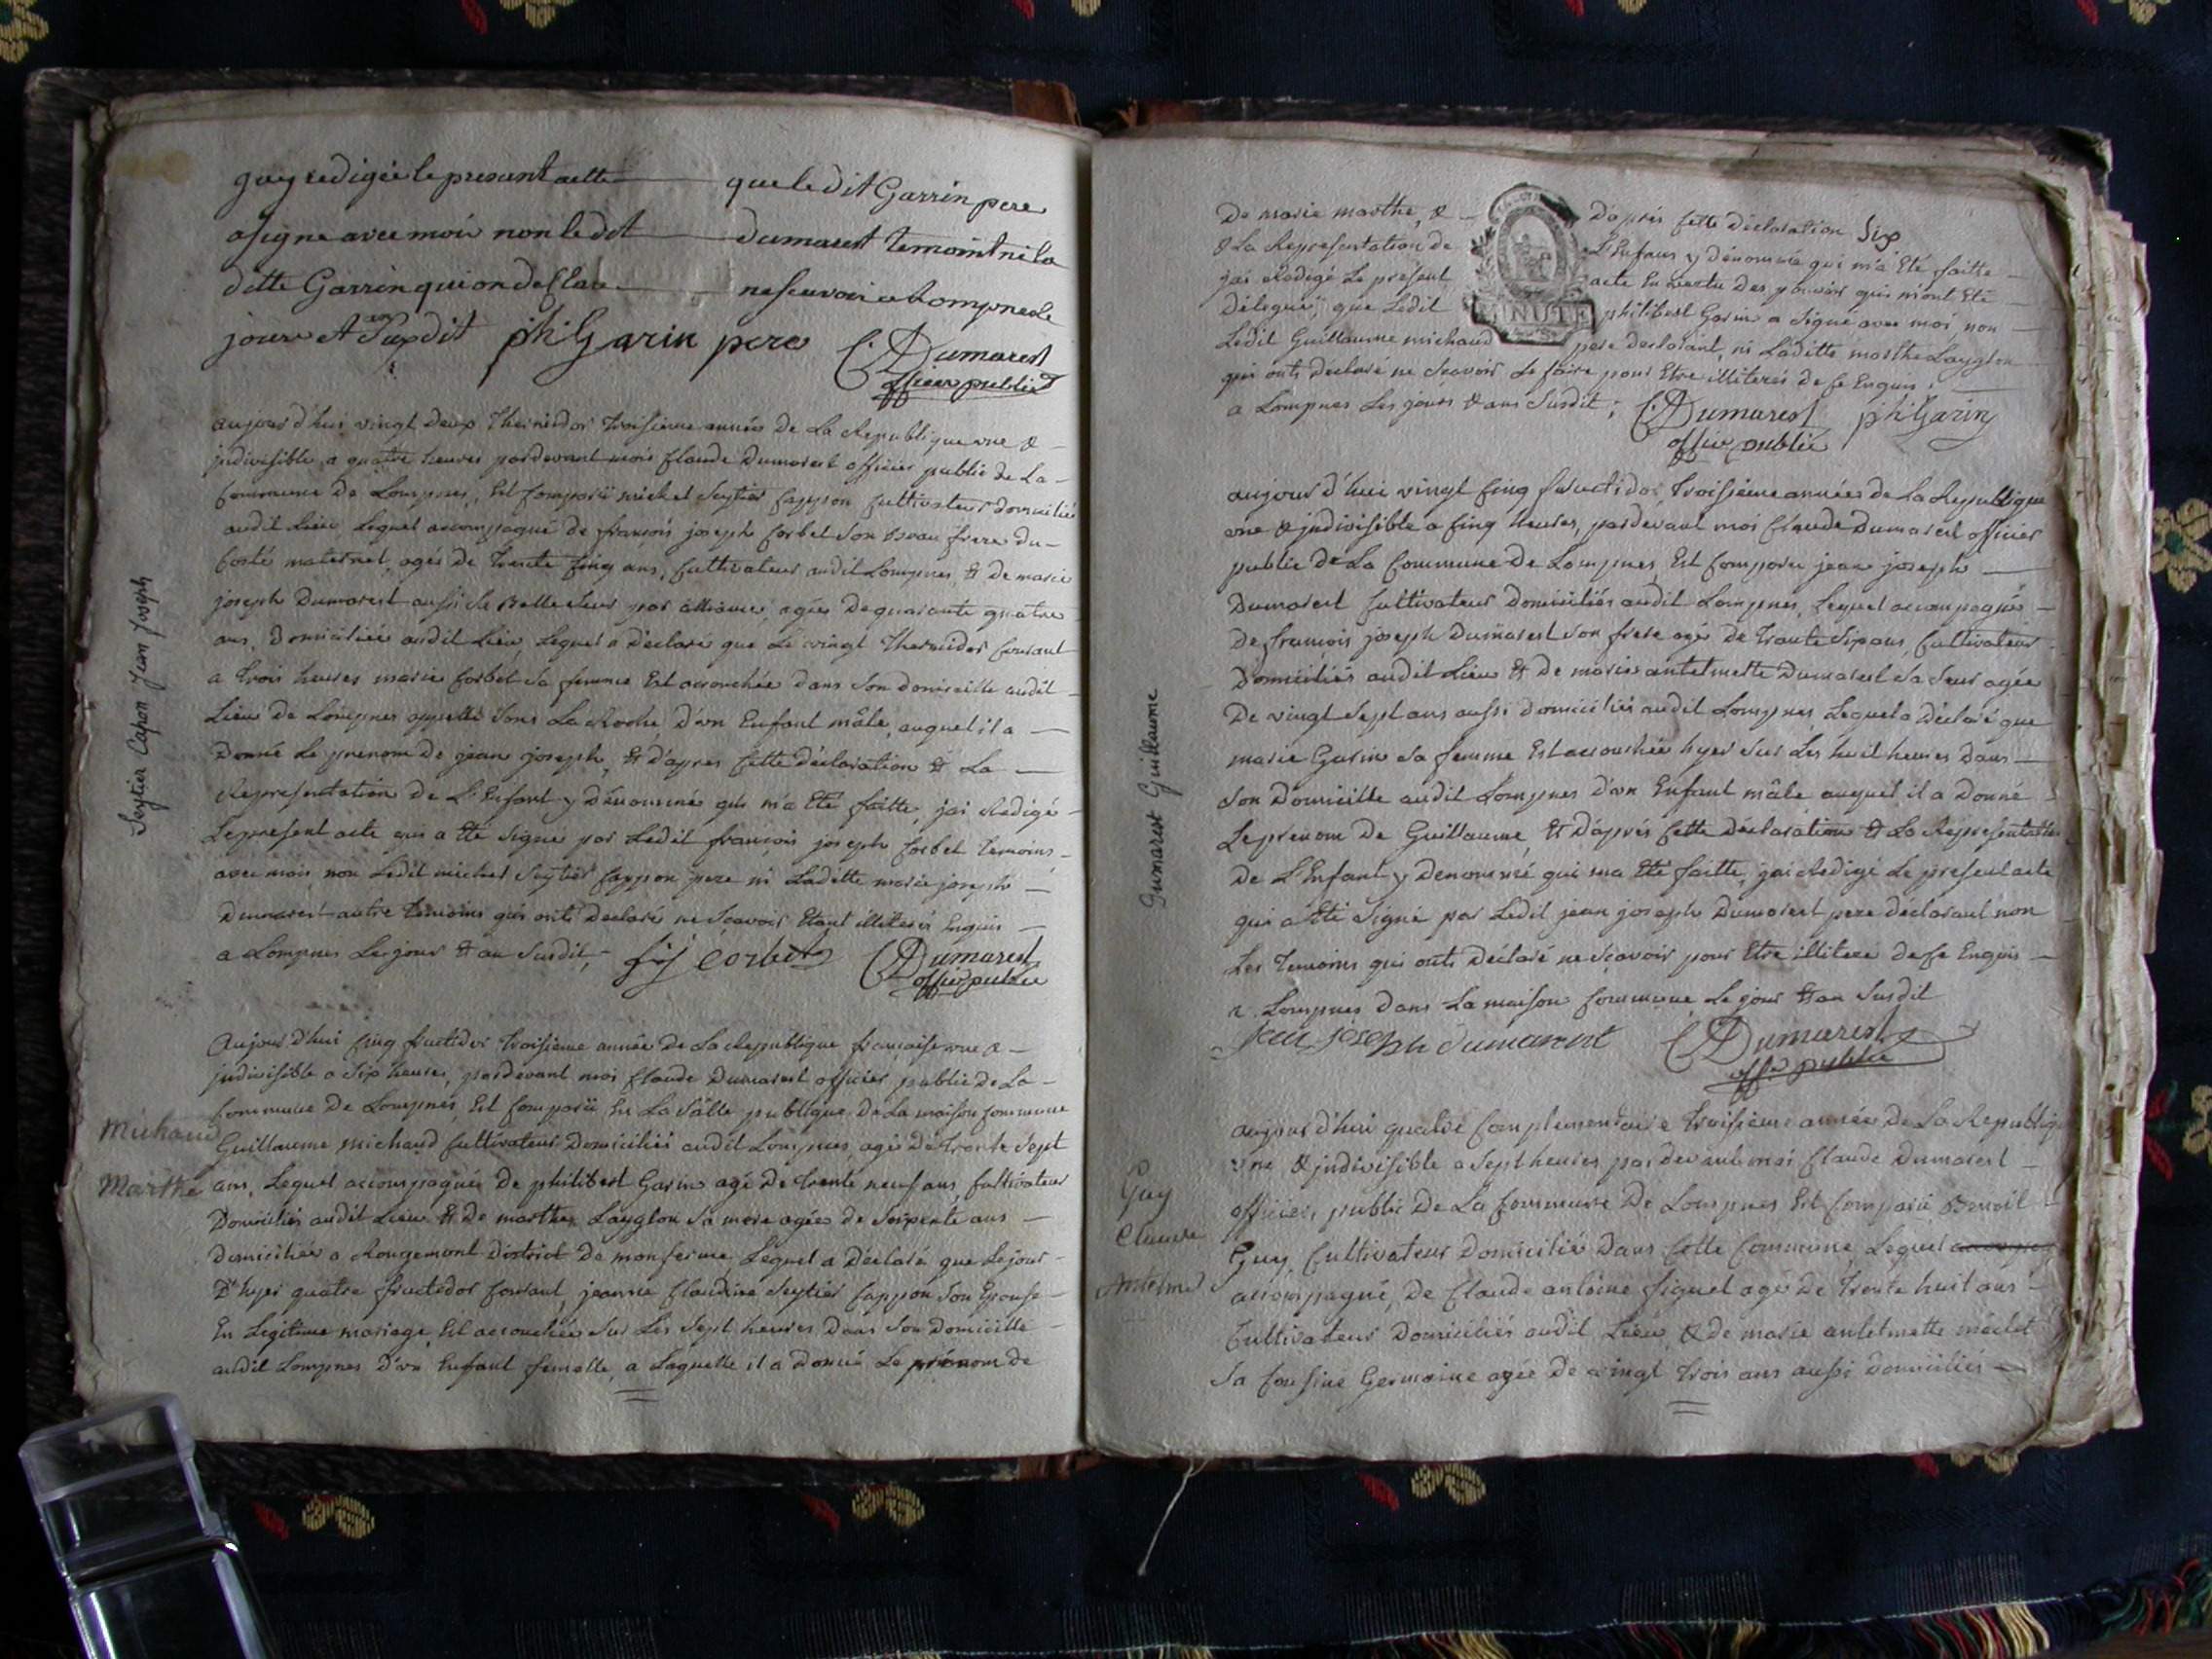 guey redigée le present actte que le dit Garrin pere
a signe avec moi non le dit dumarest temoint ni la
ditte Garrin qui on desclare ne scavoir a Lompnes le
jours et an susdit ph Garin pere C Dumarest
officier public
Seytier Capon Jean Joseph
aujourd'hui vingt deux Thermidor troisieme année de La Republique une &
indivisible, a quatre heures pardevant mois Claude Dumarest officier public de La
Commune de Lompnes, Est Comparü michel Seytier Cappon Cultivateur domicilié
audit Lieu, Lequel accompagné de françois joseph Corbet son beau frere du
Costé maternel, agés de trente cinq ans, Cultivateur audit Lompnes, & de marie
joseph Dumarest aussi sa Belle seur par alliance, agée de quarante quatre
ans, Domiciliée audit Lieu, Lequel a déclaré que Le vingt thermidor Courant
a trois heures marie Corbet sa femme Est accouchée dans son domicille audit
Lieu de Lompnes appellé sous La Roche, d'un Enfant mâle, auquel il a
Donné Le prenom de jean joseph, & d'apres Cette déclaration & La
Representation de L'Enfant y dénommé qui m'a Eté faitte, jai Redigé
Le present acte qui a Eté signé par Ledit françois joseph Corbet temoins
avec mois, non Ledit michel Seytier Cappon pere ni Laditte marie joseph
Dumarest autre temoins qui ont Declaré ne Sçavoir Etant illiteré Enquis
a Lompnes Le jour & an Susdit, f j corbet C Dumarest
officier public
Aujourd'hui Cinq fructidor troisieme année de La Republique française une &
indivisible a Six heures, pardevant moi Claude Dumarest officier public de La
Commune de Lompnes, Est Comparü En La Sâlle publique de La maison Commune
Michaud
Guillaume michaud Cultivateur Domiciliés audit Lompnes, agé de trente sept
Marthe
ans, Lequel accompagnée de philibert Garin agé de trente neuf ans, Cultivateur
Domiciliés audit Lieu & de marthe Layglon sa mere agée de Soixante ans
domiciliée a Rougemont District de monferme, Lequel a Déclaré que Le jour
D'hyer quatre fructidor Courant, jeanne Claudine Seytier Cappon son Epouse
En Legitime mariage, Est accouchée sur Les Sept heures dans son Domicille
audit Lompnes d'un Enfant femelle, a Laquelle il a Donné Le prénom de
De marie marthe, & d'aprés Cette déclaration Six
& La Representation de L'Enfans y dénommé qui m'a Eté faitte
jai Redigé Le présent acte En vertu Des pouvoirs qui m'ont Eté
Délegués, que Ledit philibert Garin a Signé avec moi, non
MINUTE
Ledit Guillaume michaud pere declarant, ni Laditte marthe Layglon
qui onts Déclaré ne Scavoir Le faire pour Etre illiterés de Ce Enquis,
a Lompnes Les jours & ans Susdit; C Dumarest ph Garin
officier public
Dumarest Guillaume
aujourd'hui vingt Cinq fructidor troisieme années de La Republique
une & jndivisible a Cinq heures, pardevant moi Claude Dumarest officier
public de La Commune de Lompnes, Est Comparu jean joseph
Dumarest Cultivateur Domiciliés audit Lompnes, Lequel accompagné
De francois joseph Dumarest son frere agés de trante Six ans, Cultivateur
Domiciliés audit Lieu & de marie antelmette Dumarest sa Seur agée
De vingt Sept ans aussi domiciliée audit Lompnes Lequel a Déclaré que
marie Garin sa femme Est accouchée hyer sur Les huit heures dans
son Domicille audit Lompnes d'un Enfant mâle auquel il a Donné
Le prenom De Guillaume, & D'aprés Cette Déclaration & La Représentation
De L'Enfant y Denommé qui ma Eté faitte, jai Redigé Le present acte
qui a Eté Signé par Ledit jean joseph Dumarest pere déclarant non
Les temoins qui onts Déclaré ne Scavoir pour Etre illitere de Ce Enquis
a Lompnes dans La maison Commune Le jour & an Susdit
Jean joseph dumarest C Dumarest
offr public
aujourd'hui quatre Complementaire troisieme année de La Republiq
une & jndivisible a Sept heures pardevant moi Claude Dumarest
Guy
officier public De La Commune De Lompnes Est Comparü Benoit
Claude
Guy, Cultivateur Domicilié Dans Cette Commune, Lequel
Antelme
accompagné, De Claude antoine Figuet agé de trente huit ans
Cultivateur Domiciliés audit Lieu, & de marie antelmette
Sa Cousine Germaine agée De vingt trois ans aussi Domiciliés